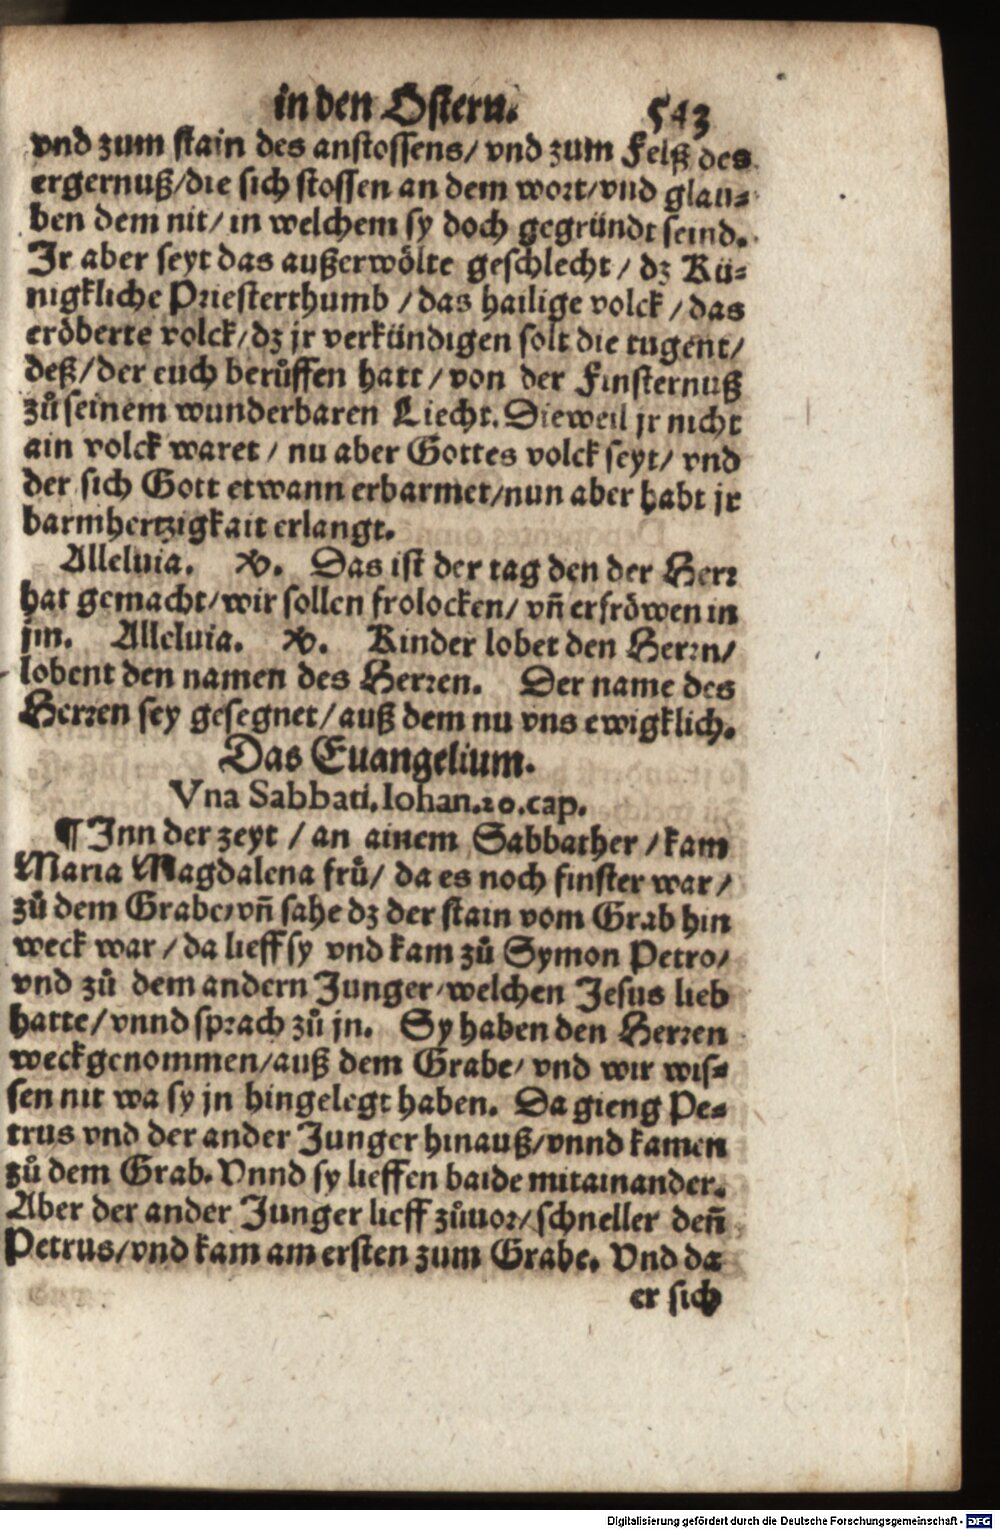 in den Ostern. 543
vnd zum stain des anstossens/ vnd zum Felß des
ergernuß/die sich stossen an dem wort/vnd glau⸗
ben dem nit/ in welchem sy doch gegründt seind.
Jr aber seyt das außerwölte geschlecht / dz Kü⸗
nigkliche Priesterthumb / das hailige volck / das
eröberte volck/dz jr verkündigen solt die tugent/
deß/der euch berůffen hatt / von der Finsternuß
zů seinem wunderbaren Liecht. Dieweil jr nicht
ain volck waret / nu aber Gottes volck seyt/ vnd
der sich Gott etwann erbarmet/nun aber habt jr
barmhertzigkait erlangt.
Alleluia. ℣. Das ist der tag den der Herr
hat gemacht/wir sollen frolocken/ vñ erfröwen in
jm. Alleluia. ℣. Kinder lobet den Herrn/
lobent den namen des Herren. Der name des
Herren sey gesegnet/auß dem nu vns ewigklich.
Das Euangelium.
Vna Sabbati. Iohan. 20. cap.
¶ Jnn der zeyt / an ainem Sabbather / kam
Maria Magdalena frů/ da es noch finster war/
zů dem Grabe/vñ sahe dz der stain vom Grab hin
weck war / da lieff sy vnd kam zů Symon Petro/
vnd zů dem andern Junger/welchen Jesus lieb
hatte/vnnd sprach zů jn. Sy haben den Herren
weckgenommen/auß dem Grabe/ vnd wir wis⸗
sen nit wa sy jn hingelegt haben. Da gieng Pe⸗
trus vnd der ander Junger hinauß/vnnd kamen
zů dem Grab. Vnnd sy lieffen baide mitainander.
Aber der ander Junger lieff zůuor/schneller deñ
Petrus/vnd kam am ersten zum Grabe. Vnd da
er sich
Digitalisierung gefördert durch die Deutsche Forschungsgemeinschaft - DFG